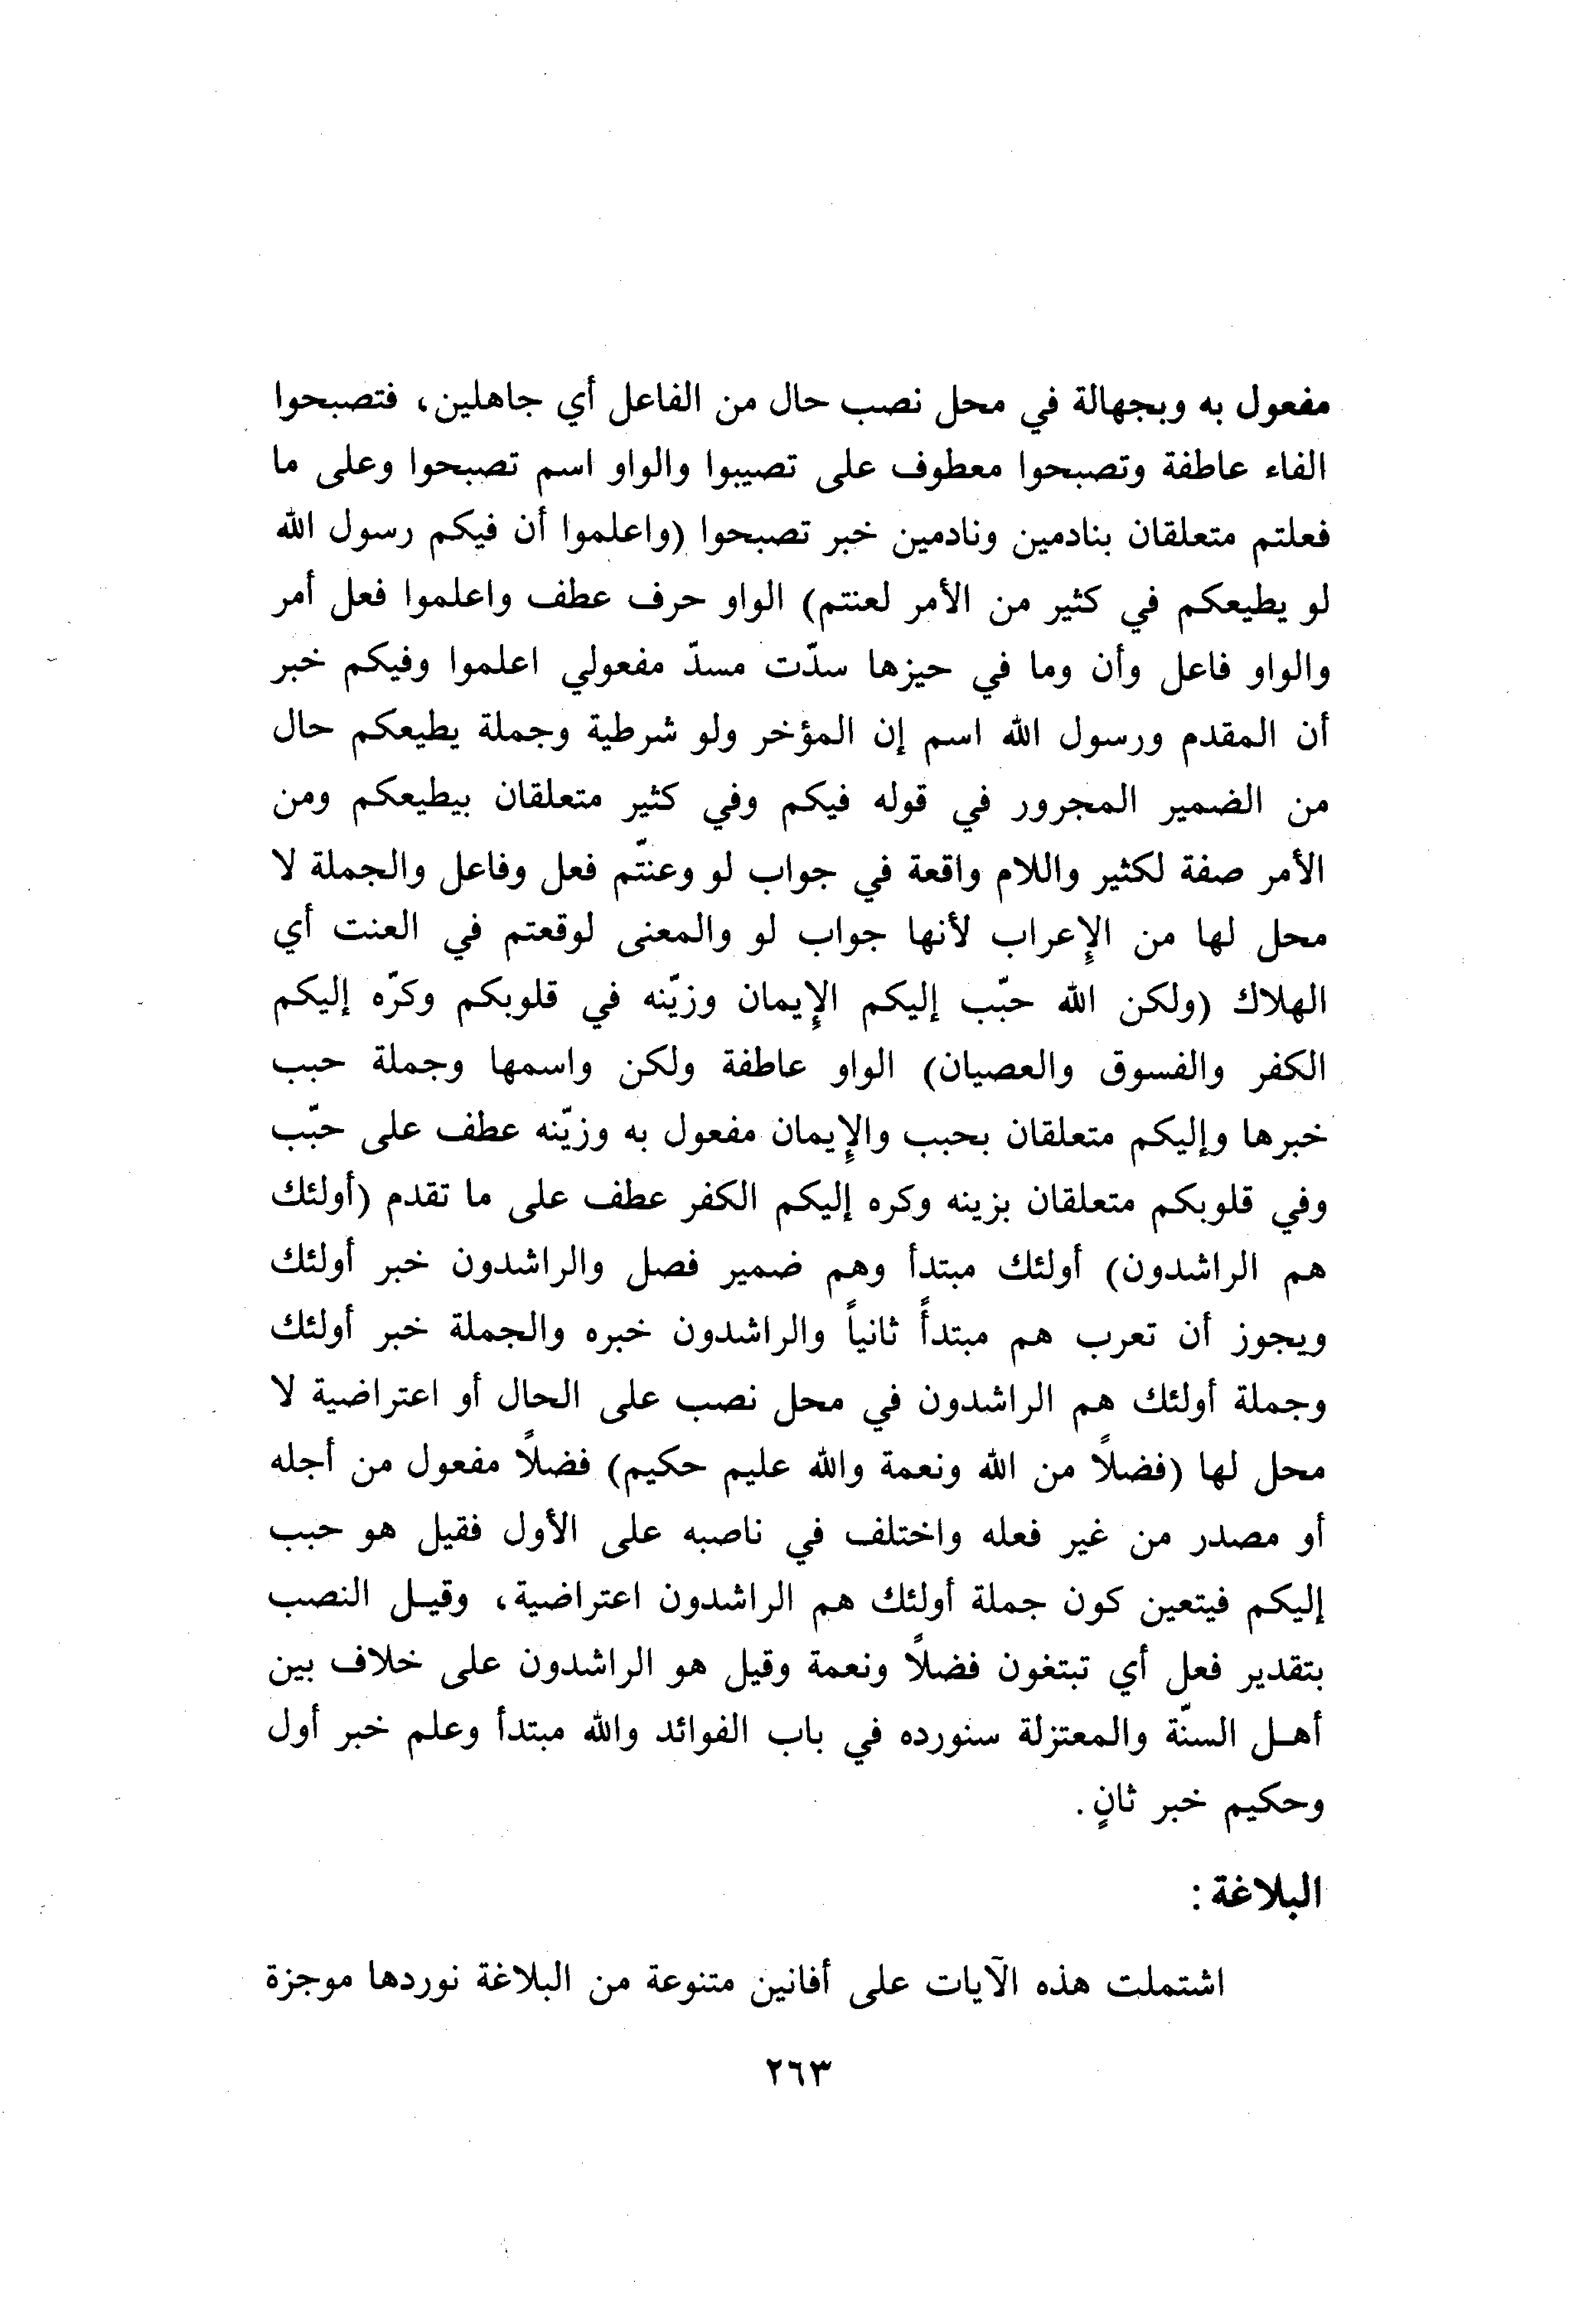 مفعول به وبجهالة في محل نصب حال من الفاعل أي جاهلين، فتصبحوا
الفاء عاطفة وتصبحوا معطوف على تصيبوا والواو اسم تصبحوا وعلى ما
فعلتم متعلقان بنادمين ونادمين خبر تصبحوا (واعلموا أن فيكم رسول الله
لو يطيعكم في كثير من الأمر لعنتم) الواو حرف عطف واعلموا فعل أمر
والواو فاعل وأن وما في حيزها سدّت مسدّ مفعولي اعلموا وفيكم خبر
أن المقدم ورسول الله اسم إن المؤخر ولو شرطية وجملة يطيعكم حال
من الضمير المجرور في قوله فيكم وفي كثير متعلقان بيطيعكم ومن
الأمر صفة لكثير واللام واقعة في جواب لو وعنتّم فعل وفاعل والجملة لا
محل لها من الإعراب لأنها جواب لو والمعنى لوقعتم في العنت أي
الهلاك (ولكن الله حبّب إليكم الإيمان وزيّنه في قلوبكم وكرّه إليكم
الكفر والفسوق والعصيان) الواو عاطفة ولكن واسمها وجملة حبب
خبرها وإليكم متعلقان بحبب والإيمان مفعول به وزيّنه عطف على حبّب
وفي قلوبكم متعلقان بزينه وكره إليكم الكفر عطف على ما تقدم (أولئك
هم الراشدون) أولئك مبتدأ وهم ضمير فصل والراشدون خبر أولئك
ويجوز أن تعرب هم مبتدأً ثانياً والراشدون خبره والجملة خبر أولئك
وجملة أولئك هم الراشدون في محل نصب على الحال أو اعتراضية لا
محل لها (فضلًا من الله ونعمة والله عليم حكيم) فضلًا مفعول من أجله
أو مصدر من غير فعله واختلف في ناصبه على الأول فقيل هو حبب
إليكم فيتعين كون جملة أولئك هم الراشدون اعتراضية، وقيل النصب
بتقدير فعل أي تبتغون فضلًا ونعمة وقيل هو الراشدون على خلاف بين
أهل السنّة والمعتزلة سنورده في باب الفوائد والله مبتدأ وعلم خبر أول
وحكيم خبر ثانٍ.
البلاغة:
اشتملت هذه الآيات على أفانين متنوعة من البلاغة نوردها موجزة
٢٦٣